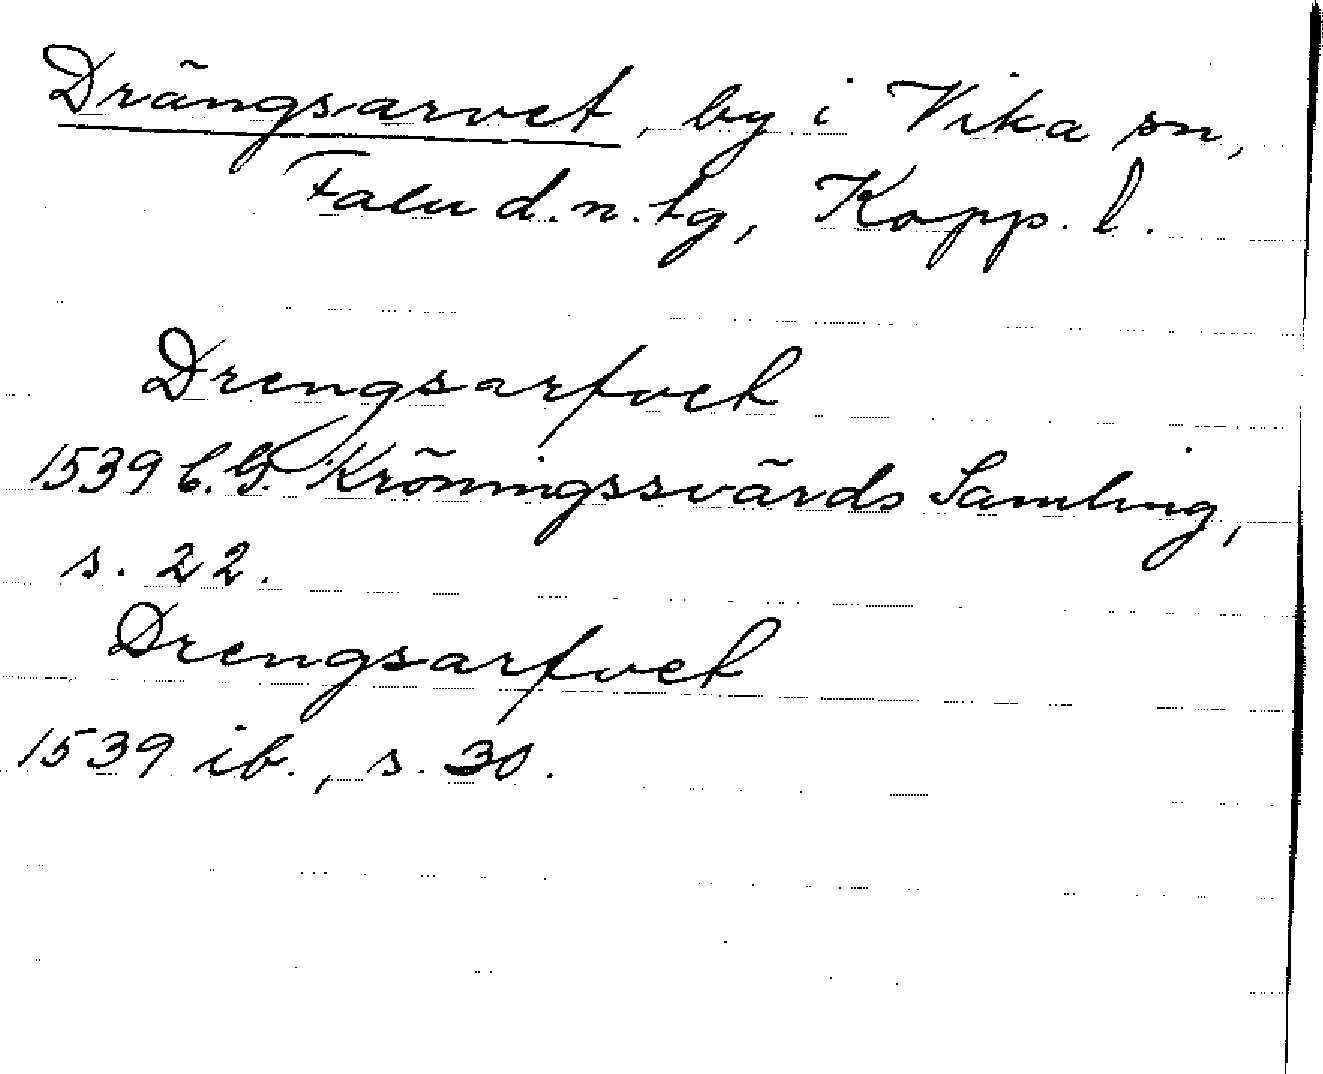 Drängsarvet, by i Vika sn,
Falu d.n.tg, Kopp. l.
Drengsarfvet
1539 C.G. Kröningssvärds Samling,
s. 22.
Drengsarfvet
1539 ib., s. 30.